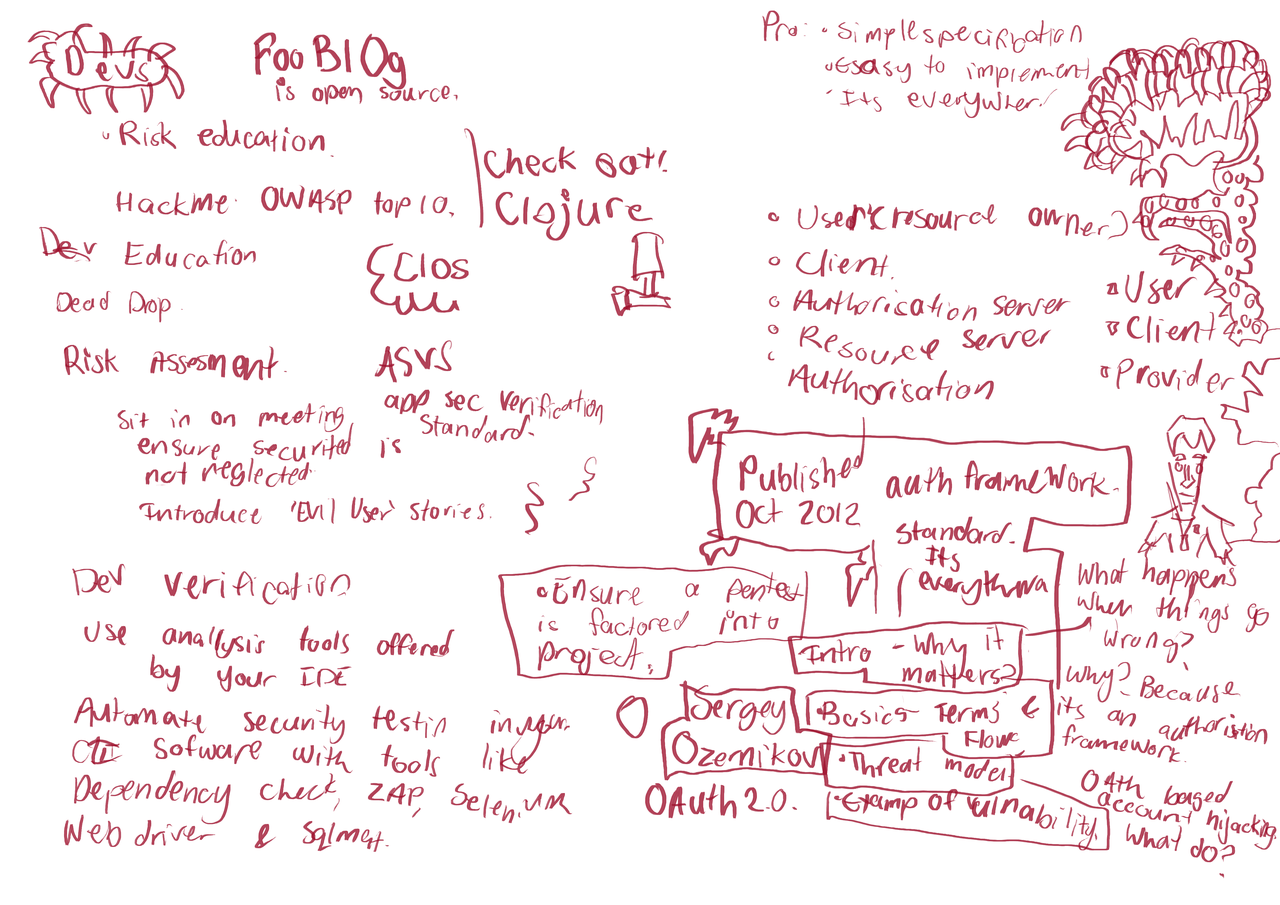 Devs
FooBlOg
is open source.
Risk education
Hackme OWASP top 10.
Check out!
Clojure
Dev Education
Dead Drop
Clos
Risk Assesment.
Sit in on meeting,
ensure securited is
not neglected.
Introduce 'Evil User' stories.
ASVS
app sec verification
Standard.
Dev verification
Use analysis tools offered
by your IDE
Automate security testin in your
Sofware with tools like
Dependency check, ZAP, Selenium
Web driver &
Ensure a pentest
is factored into
project.
Pro: Simple specification
Easy to implement
Its everywher
User (resource owner)
Client.
Authorisation server
Resource server
Authorisation
User
Client
Provider
Published
Oct 2012
auth framework.
Standard.
Its
Intro - Why it
matters?
What happens
when things go
wrong?
Why? Because
its an authoristion
framework.
Sergey
Ozernikov
OAuth 2.0.
Basics Terms &
Flow
Threat model
Examp of vulnability.
OAth based
account hijacking.
What do?